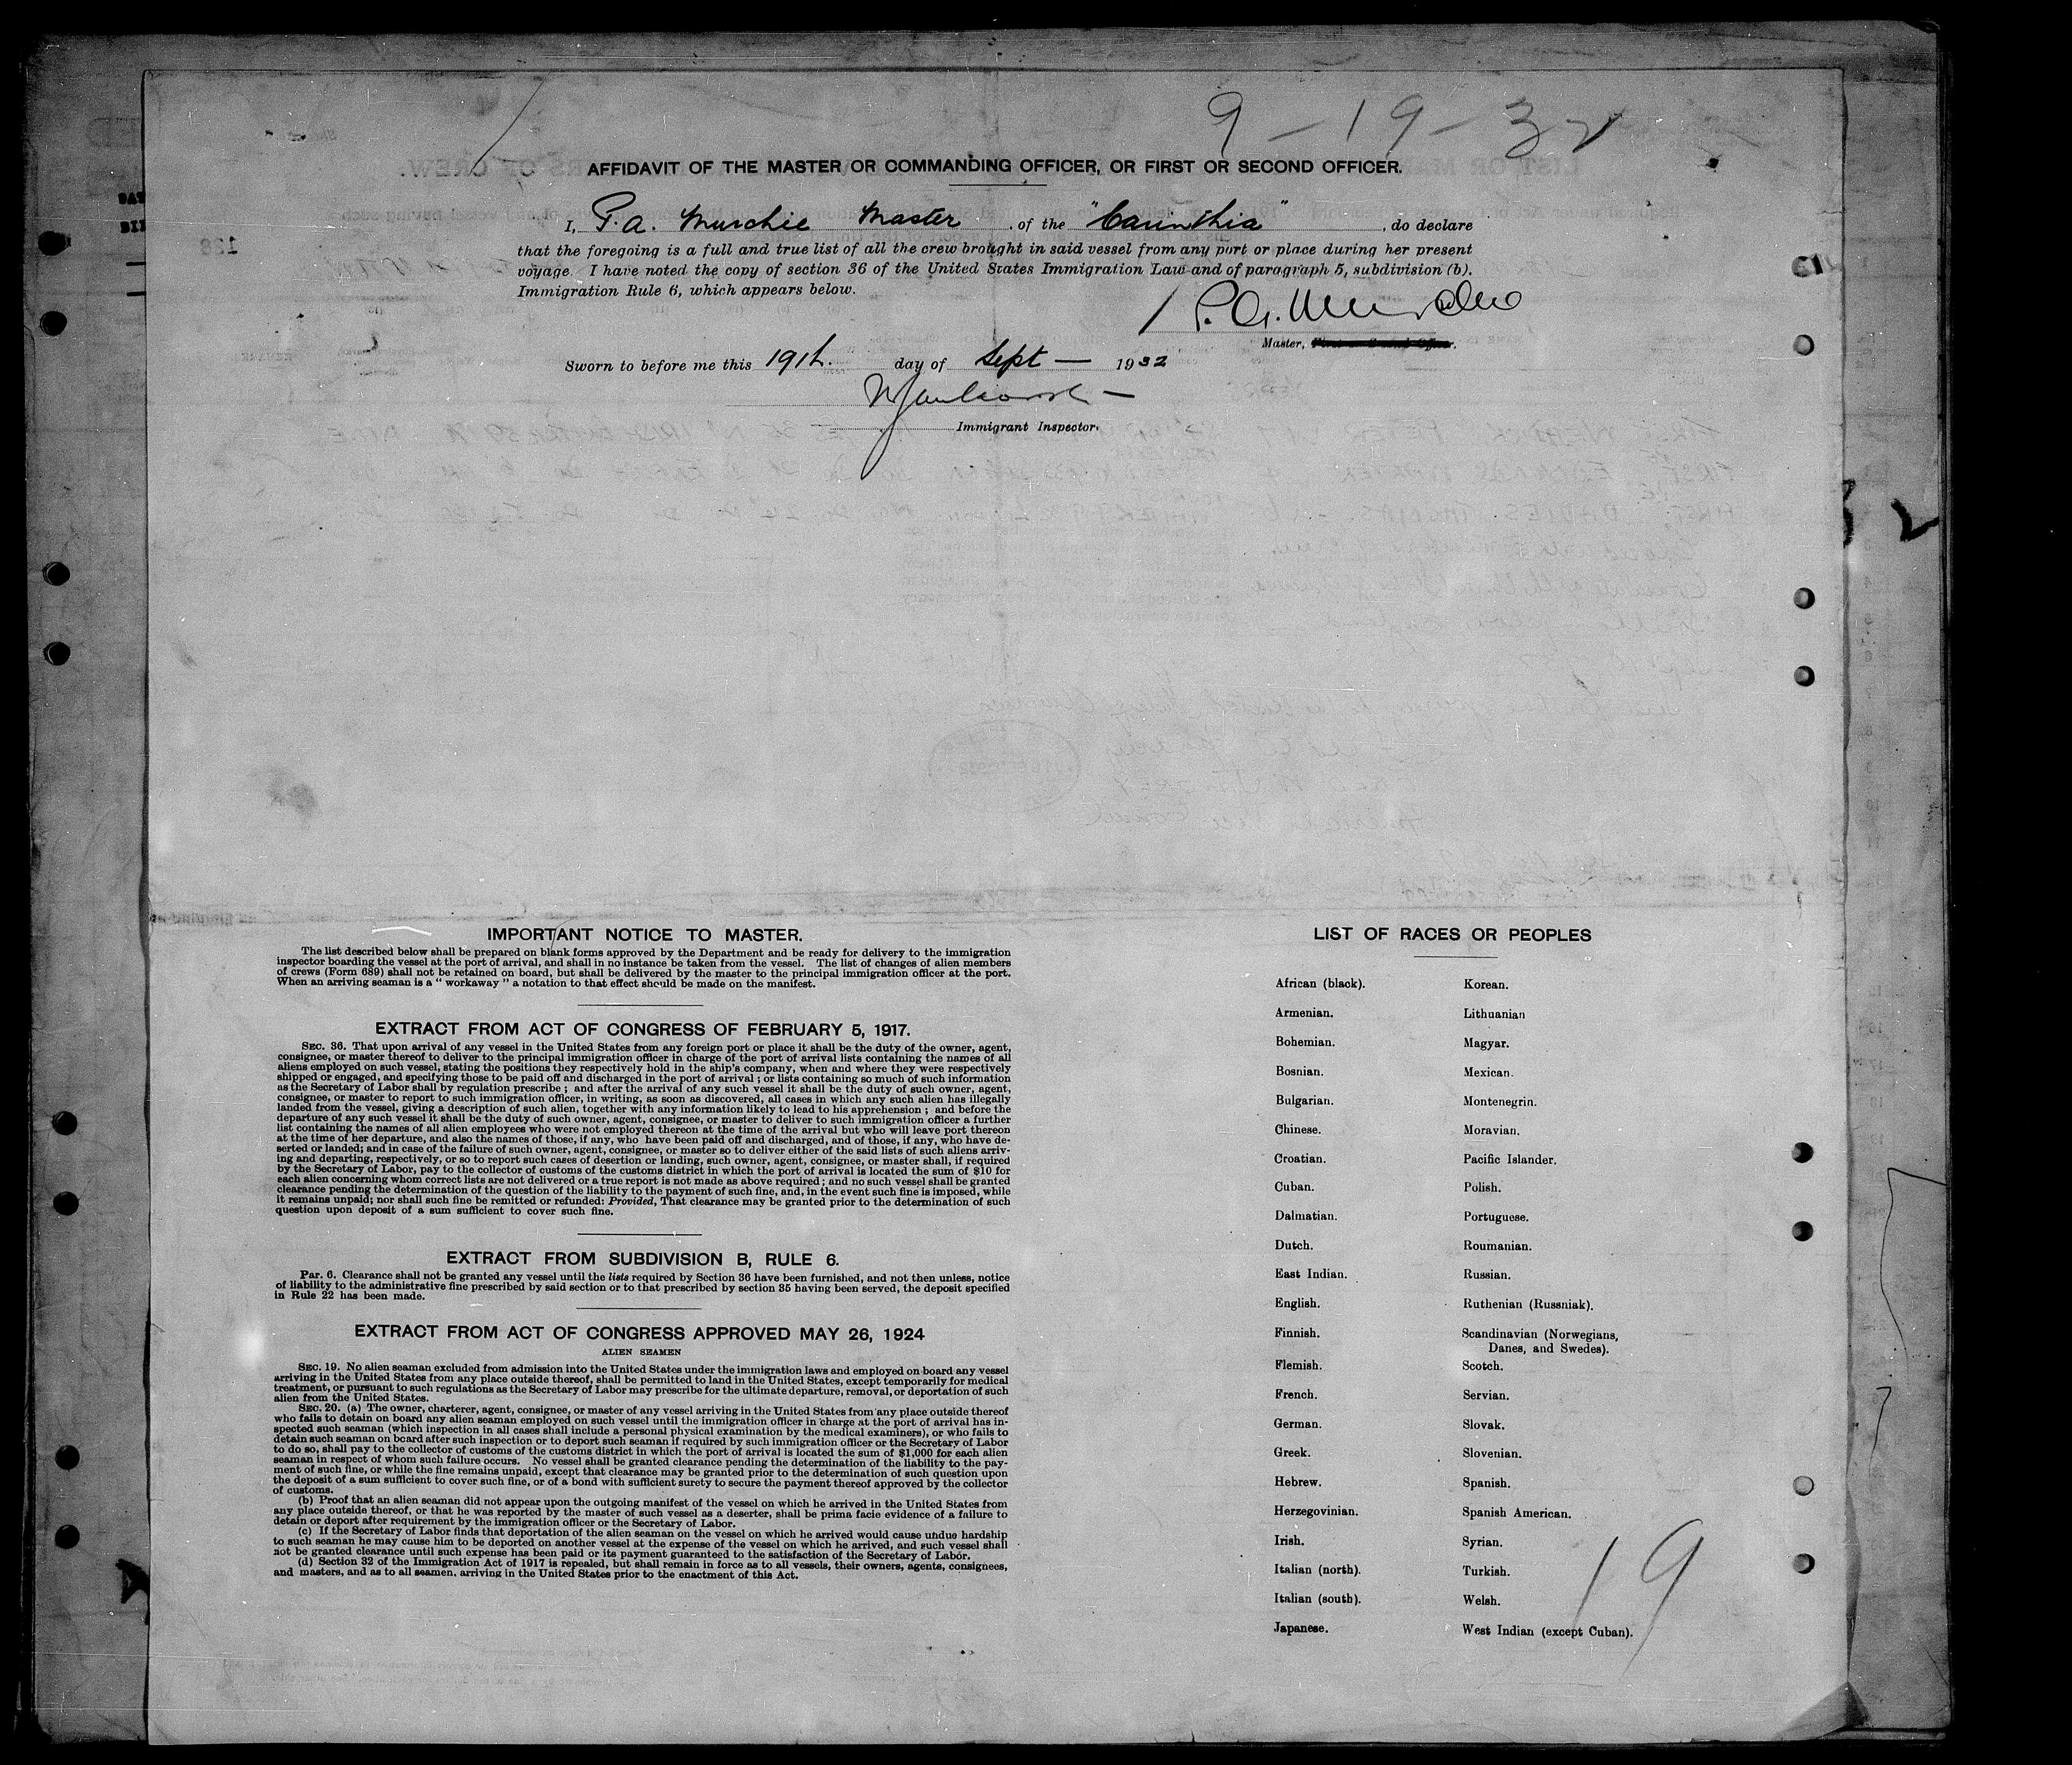 9-19-32
AFFIDAVIT OF THE MASTER OR COMMANDING OFFICER, OR FIRST OR SECOND OFFICER.
I, P. A. Murchie Master, of the "Carinthia", do declare
that the foregoing is a full and true list of all the crew brought in said vessel from any port or place during her present
voyage. I have noted the copy of section 36 of the United States Immigration Law and of paragraph 5, subdivision (b).
Immigration Rule 6, which appears below.
P. A. Murchie
Master, First or Second Officer.
Sworn to before me this 19th day of Sept — 1932
Immigrant Inspector.
IMPORTANT NOTICE TO MASTER.
The list described below shall be prepared on blank forms approved by the Department and be ready for delivery to the immigration
inspector boarding the vessel at the port of arrival, and shall in no instance be taken from the vessel. The list of changes of alien members
of crews (Form 689) shall not be retained on board, but shall be delivered by the master to the principal immigration officer at the port.
When an arriving seaman is a " workaway " a notation to that effect should be made on the manifest.
EXTRACT FROM ACT OF CONGRESS OF FEBRUARY 5, 1917.
SEC. 36. That upon arrival of any vessel in the United States from any foreign port or place it shall be the duty of the owner, agent,
consignee, or master thereof to deliver to the principal immigration officer in charge of the port of arrival lists containing the names of all
aliens employed on such vessel, stating the positions they respectively hold in the ship's company, when and where they were respectively
shipped or engaged, and specifying those to be paid off and discharged in the port of arrival ; or lists containing so much of such information
as the Secretary of Labor shall by regulation prescribe ; and after the arrival of any such vessel it shall be the duty of such owner, agent,
consignee, or master to report to such immigration officer, in writing, as soon as discovered, all cases in which any such alien has illegally
landed from the vessel, giving a description of such alien, together with any information likely to lead to his apprehension ; and before the
departure of any such vessel it shall be the duty of such owner, agent, consignee, or master to deliver to such immigration officer a further
list containing the names of all alien employees who were not employed thereon at the time of the arrival but who will leave port thereon
at the time of her departure, and also the names of those, if any, who have been paid off and discharged, and of those, if any, who have de-
serted or landed; and in case of the failure of such owner, agent, consignee, or master so to deliver either of the said lists of such aliens arriv-
ing and departing, respectively, or so to report such cases of desertion or landing, such owner, agent, consignee, or master shall, if required
by the Secretary of Labor, pay to the collector of customs of the customs district in which the port of arrival is located the sum of $10 for
each alien concerning whom correct lists are not delivered or a true report is not made as above required ; and no such vessel shall be granted
clearance pending the determination of the question of the liability to the payment of such fine, and, in the event such fine is imposed, while
it remains unpaid; nor shall such fine be remitted or refunded: Provided, That clearance may be granted prior to the determination of such
question upon deposit of a sum sufficient to cover such fine.
EXTRACT FROM SUBDIVISION B, RULE 6.
Par. 6. Clearance shall not be granted any vessel until the lists required by Section 36 have been furnished, and not then unless, notice
of liability to the administrative fine prescribed by said section or to that prescribed by section 35 having been served, the deposit specified
in Rule 22 has been made.
EXTRACT FROM ACT OF CONGRESS APPROVED MAY 26, 1924
ALIEN SEAMEN
SEC. 19. No alien seaman excluded from admission into the United States under the immigration laws and employed on board any vessel
arriving in the United States from any place outside thereof, shall be permitted to land in the United States, except temporarily for medical
treatment, or pursuant to such regulations as the Secretary of Labor may prescribe for the ultimate departure, removal, or deportation of such
alien from the United States.
SEC. 20. (a) The owner, charterer, agent, consignee, or master of any vessel arriving in the United States from any place outside thereof
who fails to detain on board any alien seaman employed on such vessel until the immigration officer in charge at the port of arrival has in-
spected such seaman (which inspection in all cases shall include a personal physical examination by the medical examiners), or who fails to
detain such seaman on board after such inspection or to deport such seaman if required by such immigration officer or the Secretary of Labor
to do so, shall pay to the collector of customs of the customs district in which the port of arrival is located the sum of $1,000 for each alien
seaman in respect of whom such failure occurs. No vessel shall be granted clearance pending the determination of the liability to the pay-
ment of such fine, or while the fine remains unpaid, except that clearance may be granted prior to the determination of such question upon
the deposit of a sum sufficient to cover such fine, or of a bond with sufficient surety to secure the payment thereof approved by the collector
of customs.
(b) Proof that an alien seaman did not appear upon the outgoing manifest of the vessel on which he arrived in the United States from
any place outside thereof, or that he was reported by the master of such vessel as a deserter, shall be prima facie evidence of a failure to
detain or deport after requirement by the immigration officer or the Secretary of Labor.
(c) If the Secretary of Labor finds that deportation of the alien seaman on the vessel on which he arrived would cause undue hardship
to such seaman he may cause him to be deported on another vessel at the expense of the vessel on which he arrived, and such vessel shall
not be granted clearance until such expense has been paid or its payment guaranteed to the satisfaction of the Secretary of Labor.
(d) Section 32 of the Immigration Act of 1917 is repealed, but shall remain in force as to all vessels, their owners, agents, consignees,
and masters, and as to all seamen, arriving in the United States prior to the enactment of this Act.
LIST OF RACES OR PEOPLES
African (black). Korean.
Armenian. Lithuanian
Bohemian. Magyar.
Bosnian. Mexican.
Bulgarian. Montenegrin.
Chinese. Moravian.
Croatian. Pacific Islander.
Cuban. Polish.
Dalmatian. Portuguese.
Dutch. Roumanian.
East Indian. Russian.
English. Ruthenian (Russniak).
Finnish. Scandinavian (Norwegians,
Danes, and Swedes).
Flemish. Scotch.
French. Servian.
German. Slovak.
Greek. Slovenian.
Hebrew. Spanish.
Herzegovinian. Spanish American.
Irish. Syrian.
Italian (north). Turkish.
Italian (south). Welsh.
Japanese. West Indian (except Cuban).
19